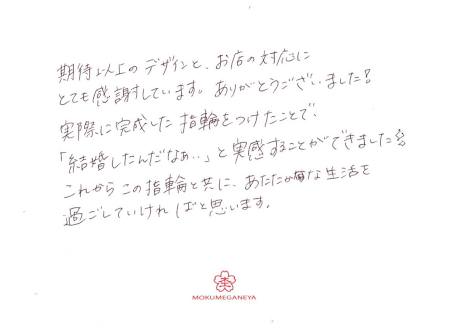 期待以上のデザインと、お店の対応に
とても感謝しています。ありがとうございました!
実際に完成した指輪をつけたことで、
「結婚したんだなぁ…」と実感することができました
これからこの指輪と共に、あたたかな生活を
過ごしていければと思います。
MOKUMEGANEYA